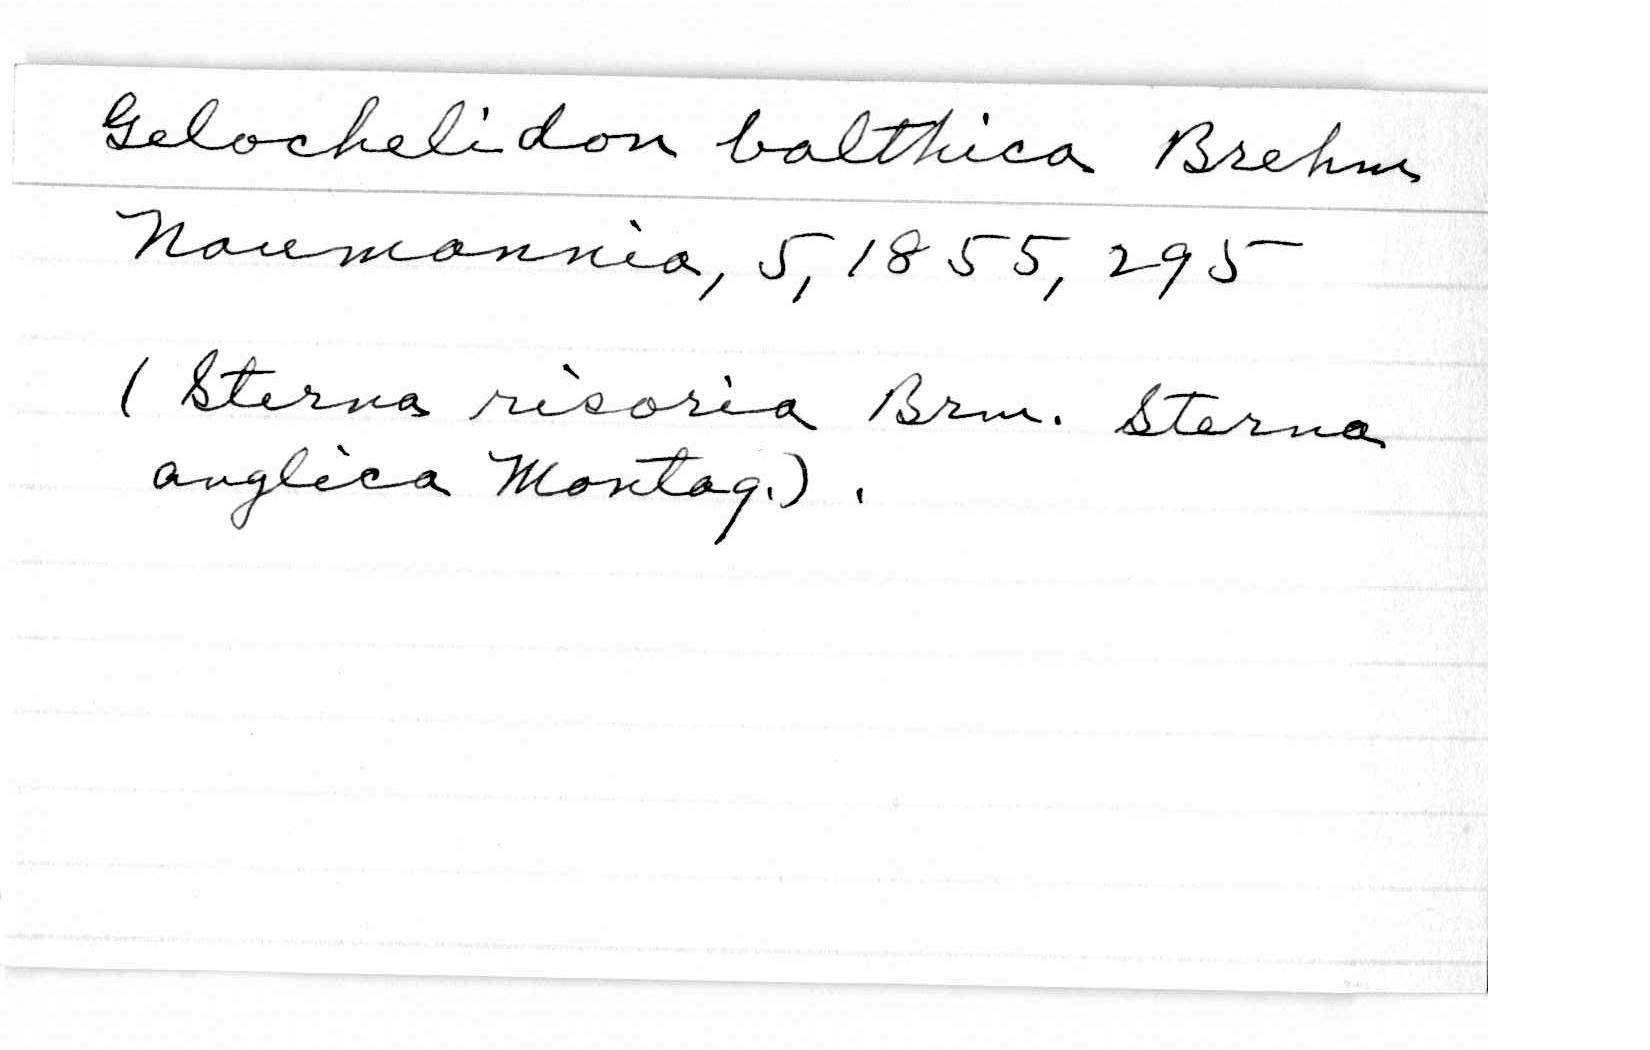 Gelochelidon balthica Brehm
Naumannia, 5, 1855, 295
(Sterna risoria Brm. Sterna
anglica Montag.).